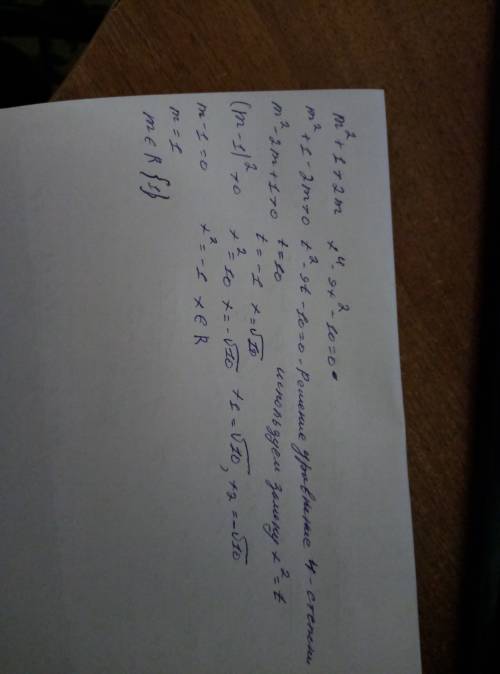 m² + 1 > 2m
m² + 1 - 2m > 0
m² - 2m + 1 > 0
(m - 1)² > 0
m - 1 = 0
m = 1
m ∈ R {1}
x⁴ - 9x² - 10 = 0
t² - 9t - 10 = 0 - решение уравнение 4-степени
t = 10 используем замену x² = t
t = -1 x = √10
x² = 10 x = -√10 x1 = √10, x2 = -√10
x² = -1 x ∈ R